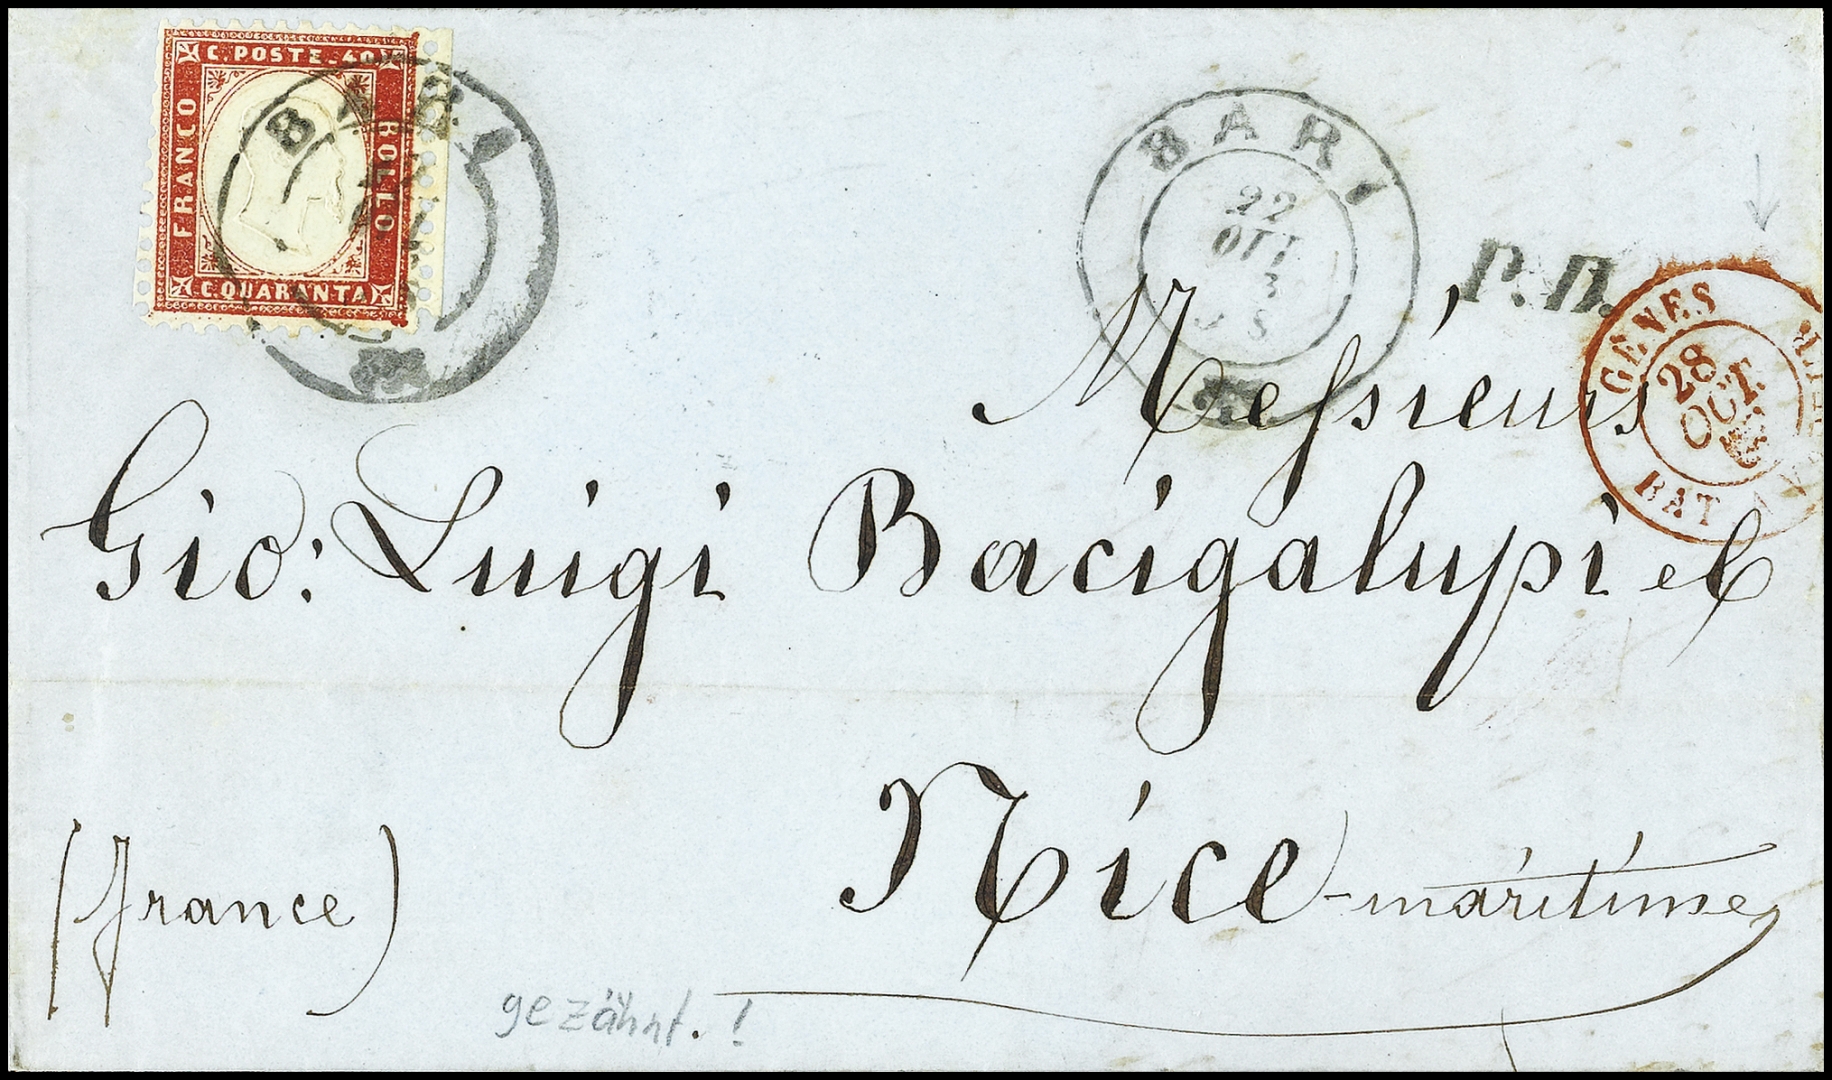 C. POSTE. 40
FRANCO
BOLLO
C. QUARANTA
BARI
BARI
22
OTT
P.D.
GÊNES
28
OCT.
BAT
Messieurs
Gio: Luigi Bacigalupi et C
Nice-maritime
(france)
gezähnt.!